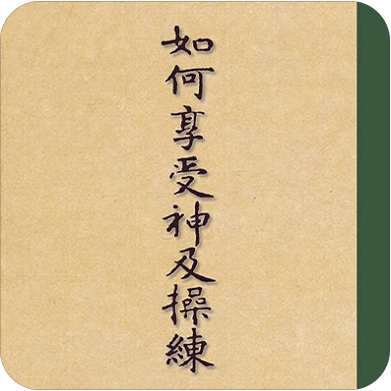 如何享受神及操練